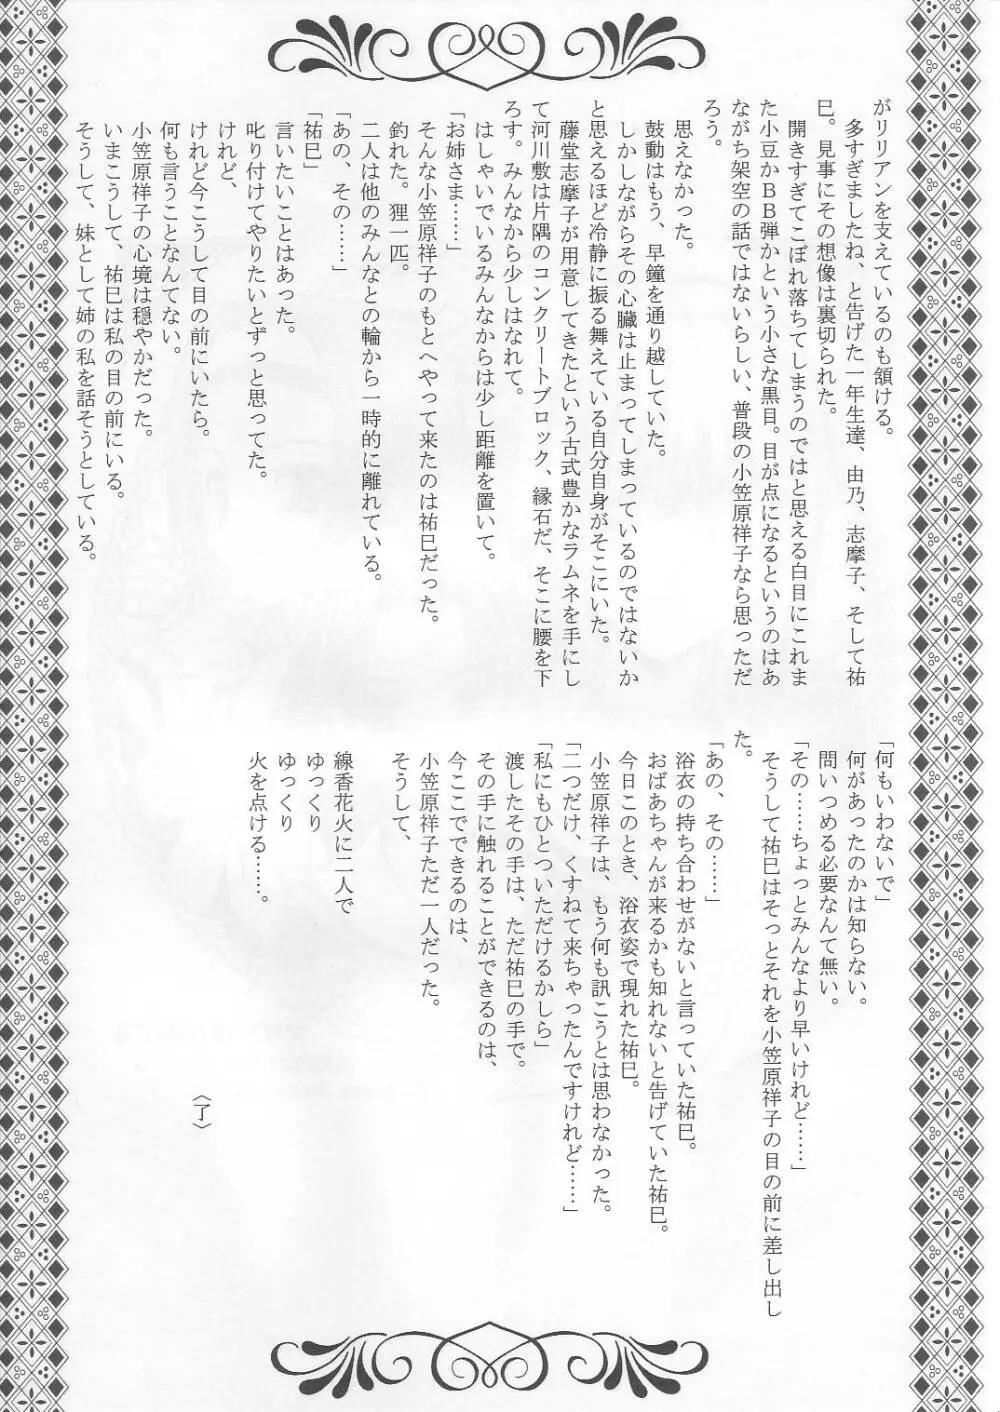 がリリアンを支えているのも頷ける。
多すぎましたね、と告げた一年生達、由乃、志摩子、そして祐
巳。見事にその想像は裏切られた。
開きすぎてこぼれ落ちてしまうのではと思える白目にこれま
た小豆かＢＢ弾かという小さな黒目。目が点になるというのはあ
ながち架空の話ではないらしい、普段の小笠原祥子なら思っただ
ろう。
思えなかった。
鼓動はもう、早鐘を通り越していた。
しかしながらその心臓は止まってしまっているのではないか
と思えるほど冷静に振る舞えている自分自身がそこにいた。
藤堂志摩子が用意してきたという古式豊かなラムネを手にし
て河川敷は片隅のコンクリートブロック、縁石だ、そこに腰を下
ろす。みんなから少しはなれて。
はしゃいでいるみんなからは少し距離を置いて。
「お姉さま……」
そんな小笠原祥子のもとへやって来たのは祐巳だった。
釣れた。狸一匹。
二人は他のみんなとの輪から一時的に離れている。
「あの、その……」
「祐巳」
言いたいことはあった。
叱り付けてやりたいとずっと思ってた。
けれど、
けれど今こうして目の前にいたら。
何も言うことなんてない。
小笠原祥子の心境は穏やかだった。
いまこうして、祐巳は私の目の前にいる。
そうして、妹として姉の私を話そうとしている。
「何もいわないで」
何があったのかは知らない。
問いつめる必要なんて無い。
「その……ちょっとみんなより早いけれど……」
そうして祐巳はそっとそれを小笠原祥子の目の前に差し出し
た。
「あの、その……」
浴衣の持ち合わせがないと言っていた祐巳。
おばあちゃんが来るかも知れないと告げていた祐巳。
今日このとき、浴衣姿で現れた祐巳。
小笠原祥子は、もう何も訊こうとは思わなかった。
「二つだけ、くすねて来ちゃったんですけれど……」
「私にもひとついただけるかしら」
渡したその手は、ただ祐巳の手で。
その手に触れることができるのは、
今ここでできるのは、
小笠原祥子ただ一人だった。
そうして、
線香花火に二人で
ゆっくり
ゆっくり
火を点ける……。
〈了〉